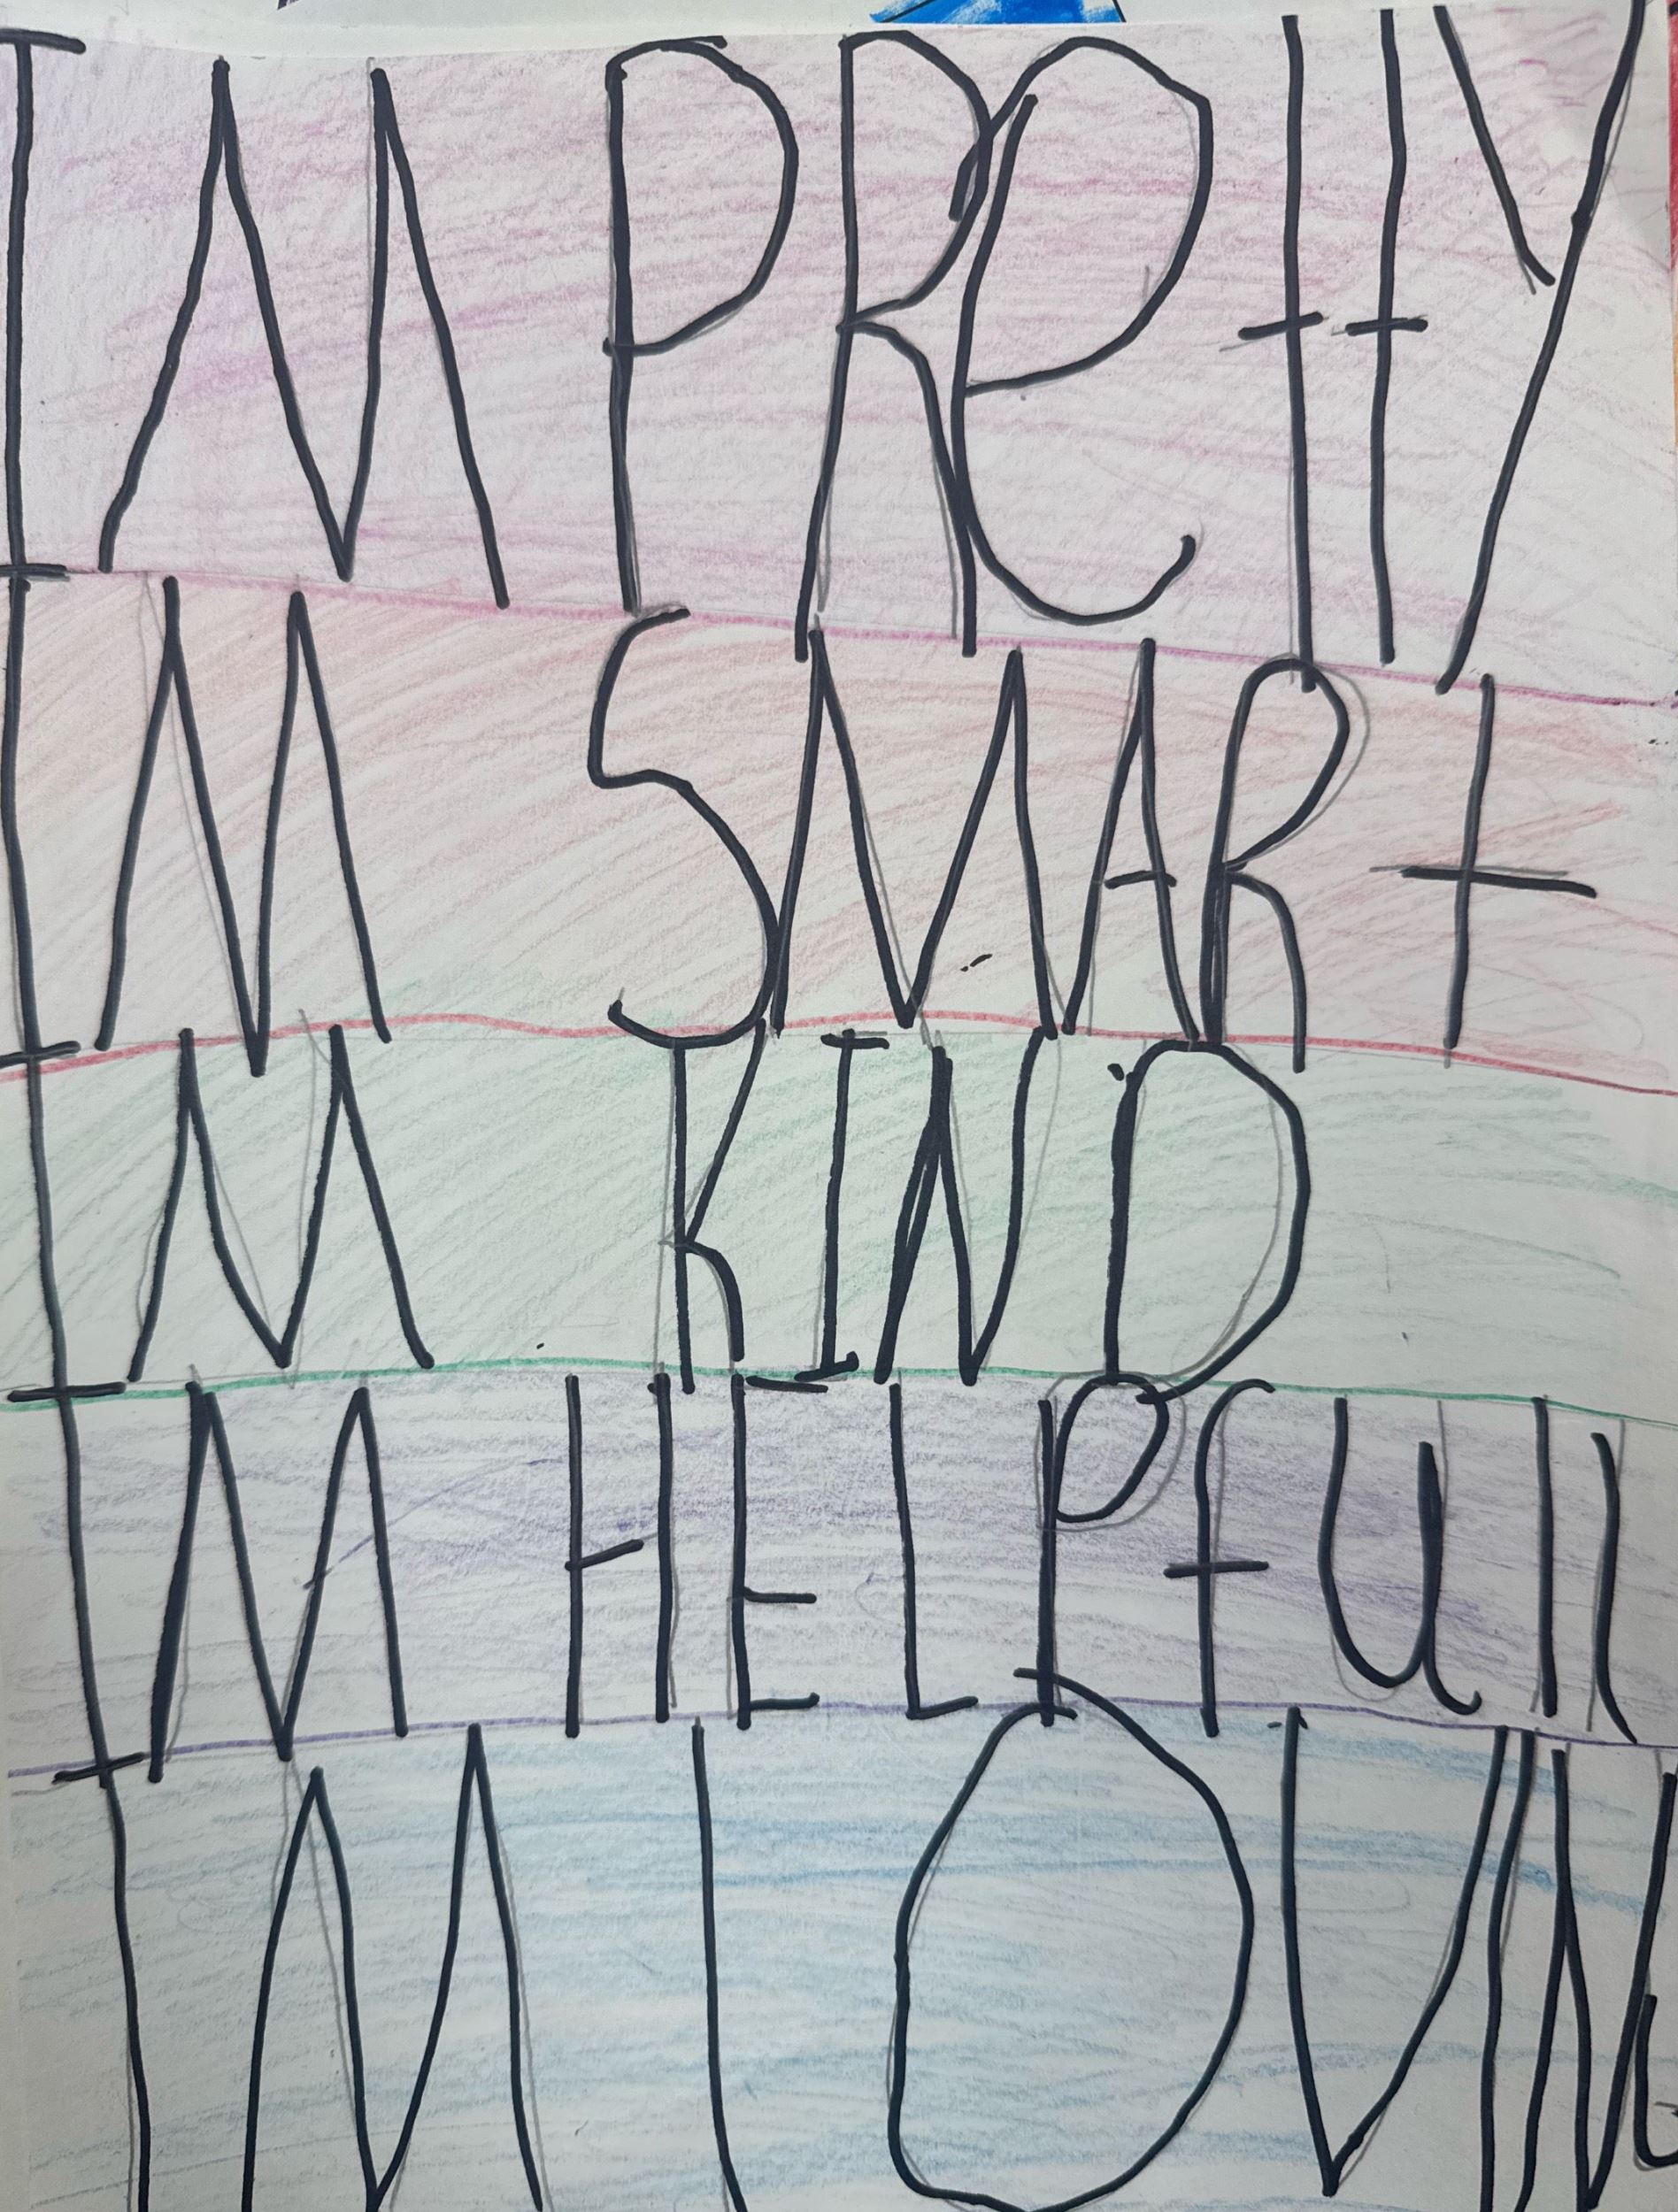 IM PRetty
IM SMARt
IM KIND
IM HELPfull
IM LOVING